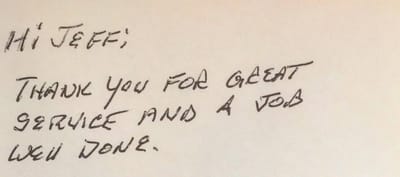 Hi JEFF;
THANK YOU FOR GREAT
SERVICE AND A JOB
WELL DONE.